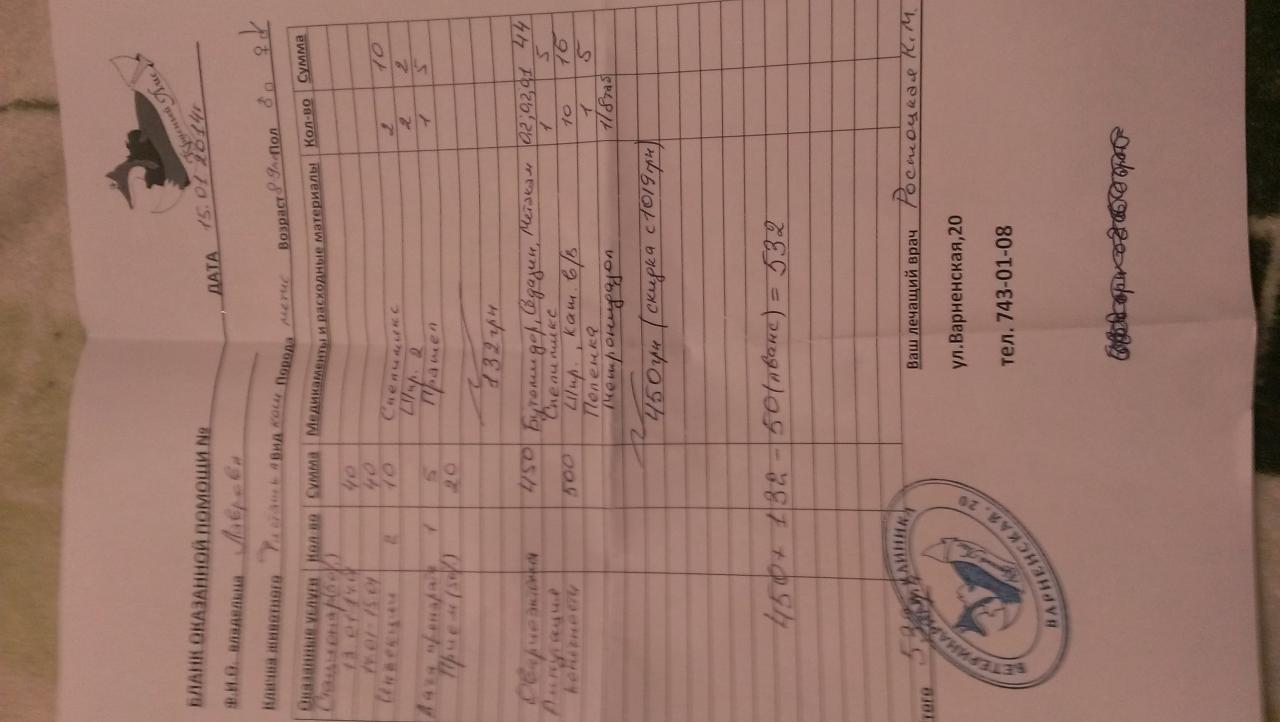 Кузьмич Лис
ДАТА 15.01 2014г
БЛАНК ОКАЗАННОЙ ПОМОЩИ №
Ф.И.О. владельца Лаврова
Кличка животного Вид кош Порода метис Возраст Пол
Оказанные услуги Кол-во Сумма Медикаменты и расходные материалы Кол-во Сумма
Стационар (50%)
13.01-14.01 40
14.01-15.01 40
Инъекции 2 10 Синпимикс 2 10
Шпр. 2 2 2
Дача препарата 1 5 Прател 1 5
Прием (50%) 20
132 грн
Овариоэктомия 450 Бутомидор, Седазин, Метакам 0,2;0,2;0,1 44
Ампутация Синпимикс 1 5
конечности 500 Шпр., кат. в/в 10 16
Пеленка 1 5
Метронидазол 1/8таб
450грн (скидка с 1019грн)
450 + 132 - 50 (аванс) = 532
Ваш лечащий врач Ростоцкая К.М.
ул.Варненская,20
тел. 743-01-08
ВЕТЕРИНАРНАЯ КЛИНИКА
ВАРНЕНСКАЯ, 20